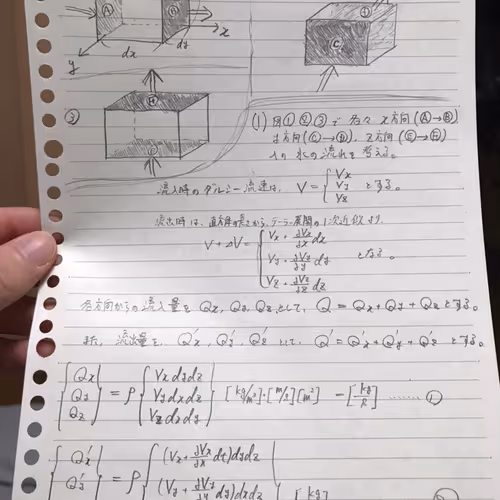 A
B
x
dx
dy
y
D
C
③
(1) 図①②③で各々x方向(Ⓐ→Ⓑ)
y方向(Ⓒ→Ⓓ), z方向(Ⓔ→Ⓕ)
への水の流れを考える。
流入時のダルシー流速は, V = { Vx Vy Vz とする。
流出時は, 直方体の長さから, テーラー展開の1次近似より,
V + ΔV = { Vx + ∂Vx/∂x dx
Vy + ∂Vy/∂y dy となる。
Vz + ∂Vz/∂z dz
各方向からの流入量を Qx, Qy, Qz として, Q = Qx + Qy + Qz とする。
また, 流出量を, Qx', Qy', Qz' として, Q' = Q'x + Q'y + Q'z とする。
{ Qx Qy Qz } = ρ { Vx dydz Vy dxdz Vz dxdy } [kg/m³]·[m/s][m²] = [kg/s] ...... ①
{ Qx' = ρ { (Vx + ∂Vx/∂x dt) dydz
Qy' (Vy + ∂Vy/∂y dy) dxdz [kg